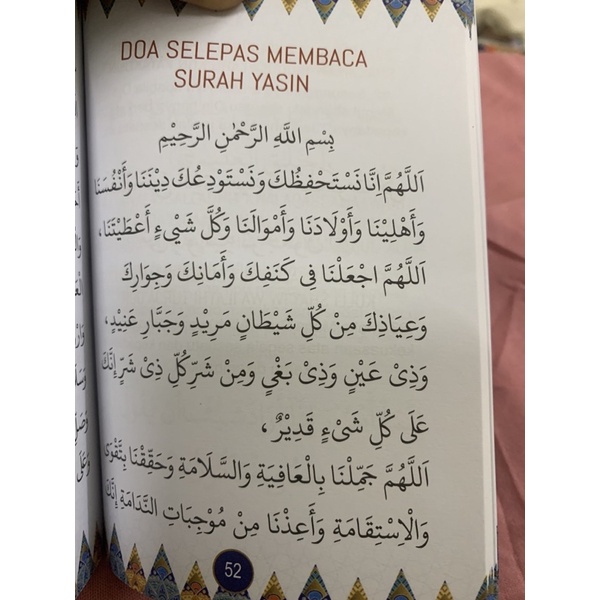 DOA SELEPAS MEMBACA
SURAH YASIN
بِسْمِ اللَّهِ الرَّحْمٰنِ الرَّحِيْمِ
اَللَّهُمَّ اِنَّا نَسْتَحْفِظُكَ وَنَسْتَوْدِعُكَ دِيْنَنَا وَأَنْفُسَنَا
وَأَهْلِيْنَا وَأَوْلَادَنَا وَأَمْوَالَنَا وَكُلَّ شَيْءٍ أَعْطَيْتَنَا،
اَللَّهُمَّ اجْعَلْنَا فِى كَنَفِكَ وَأَمَانِكَ وَجِوَارِكَ
وَعِيَاذِكَ مِنْ كُلِّ شَيْطَانٍ مَرِيْدٍ وَجَبَّارٍ عَنِيْدٍ،
وَذِىْ عَيْنٍ وَذِىْ بَغْيٍ وَمِنْ شَرِّ كُلِّ ذِىْ شَرٍّ إِنَّكَ
عَلَى كُلِّ شَىْءٍ قَدِيْرٌ،
اَللَّهُمَّ جَمِّلْنَا بِالْعَافِيَةِ وَالسَّلَامَةِ وَحَقِّقْنَا بِتَّقْوَى
وَالْاِسْتِقَامَةِ وَأَعِذْنَا مِنْ مُوْجِبَاتِ النَّدَامَةِ إِنَّكَ
52